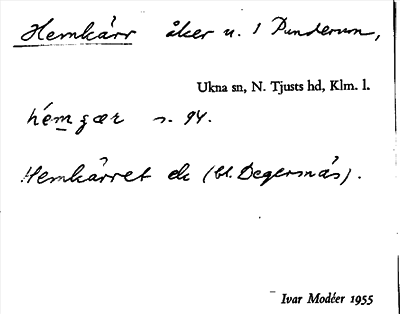 Hemkärr åker u. 1 Punderum,
Ukna sn, N. Tjusts hd, Klm. l.
hemɟær s. 94.
Hemkärret ek (bl. Degersnäs).
Ivar Modéer 1955